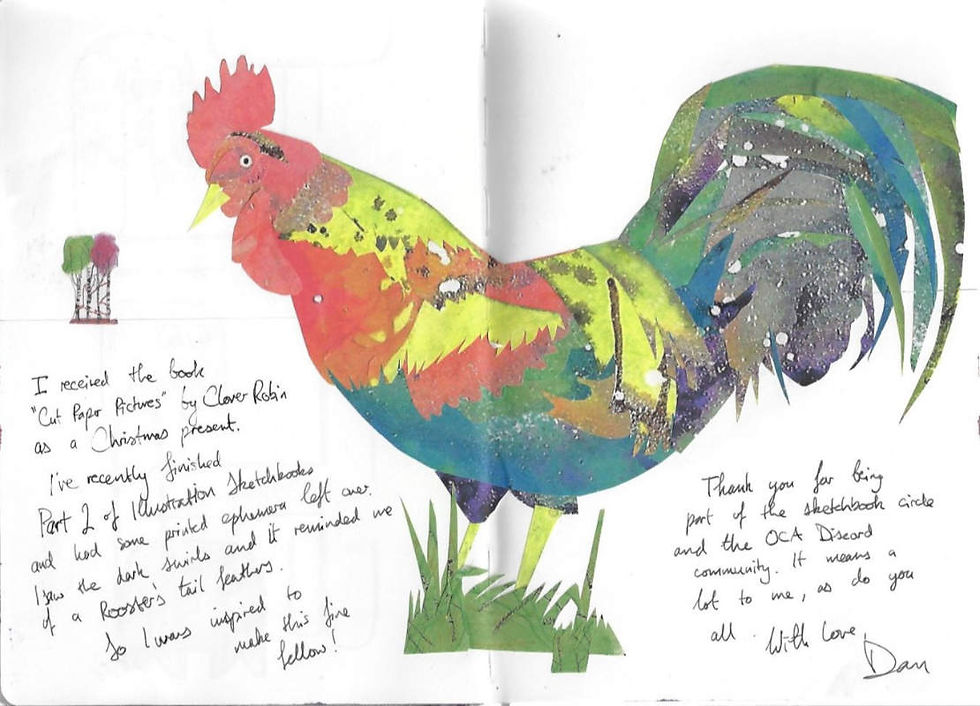 I received the book
"Cut Paper Pictures" by Clover Robin
as a Christmas present.
I've recently finished
Part 2 of Illustration Sketchbooks
and had some printed ephemera left over.
I saw the dark swirls and it reminded me
of a Rooster's tail feathers.
So I was inspired to
make this fine
fellow!
Thank you for being
part of the sketchbook circle
and the OCA Discord
community. It means a
lot to me, as do you
all. With love,
Dan